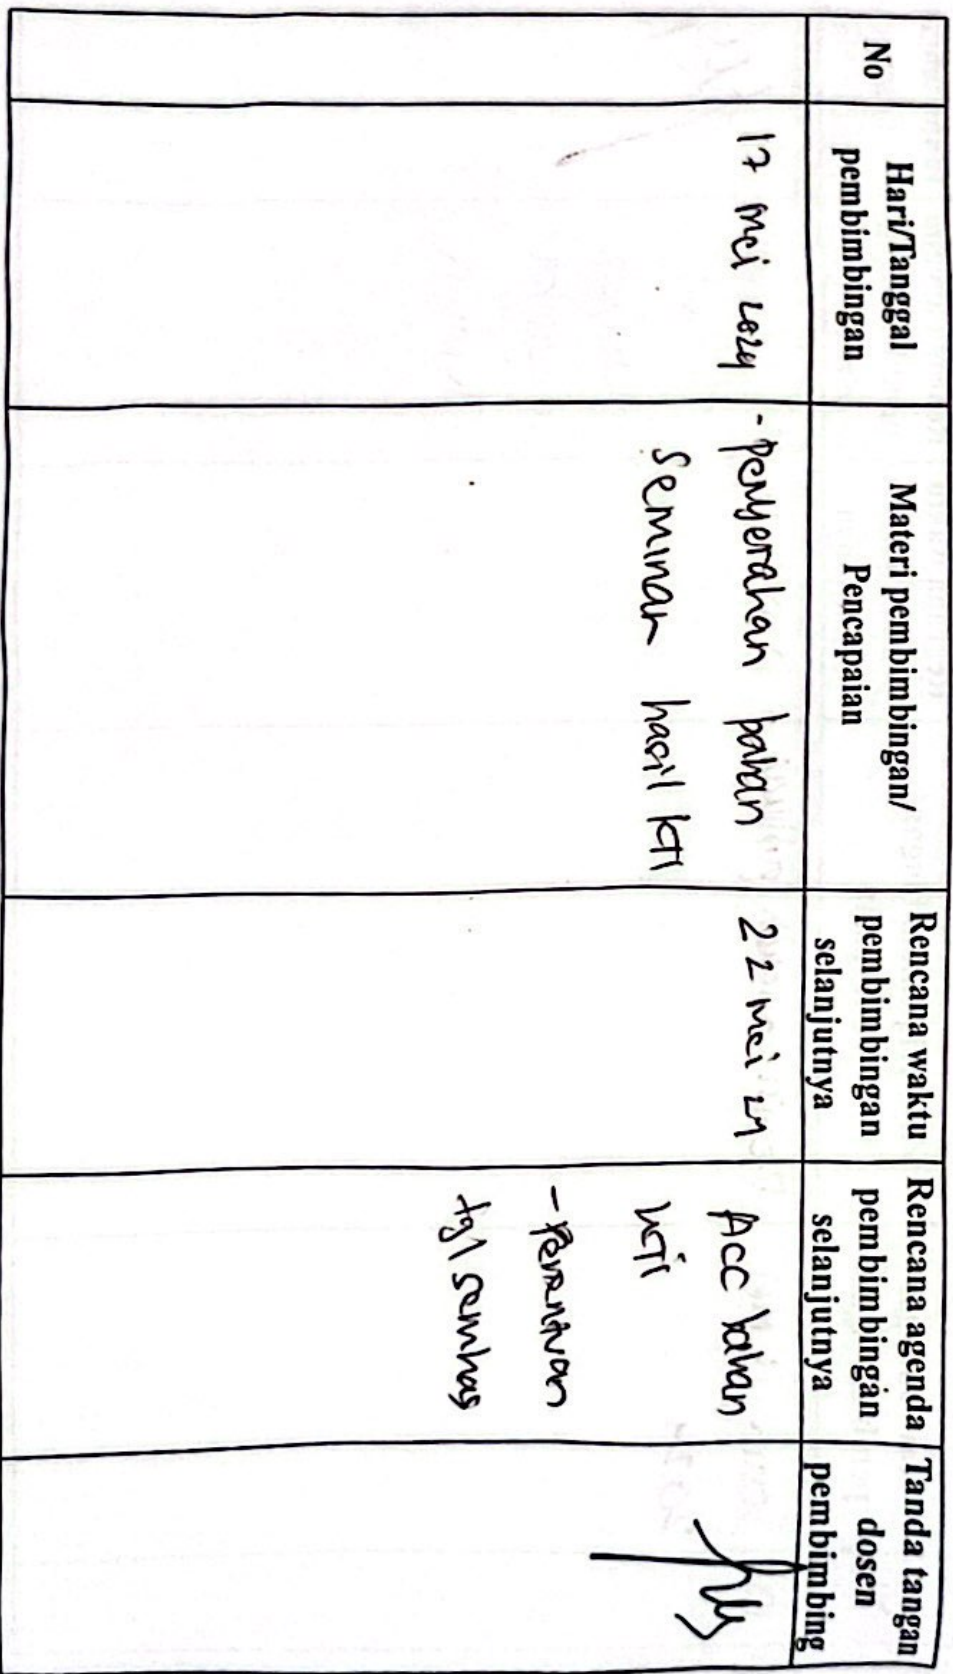 No
Hari/Tanggal
pembimbingan
Materi pembimbingan/
Pencapaian
Rencana waktu
pembimbingan
selanjutnya
Rencana agenda
pembimbingan
selanjutnya
Tanda tangan
dosen
pembimbing
17 mei 2024
- penyerahan bahan
seminar hasil KTI
22 mei 24
Acc bahan
KTI
- penentuan
tgl semhas